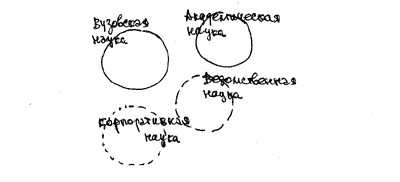 Вузовская
наука
Академическая
наука
Ведомственная
наука
Корпоративная
наука